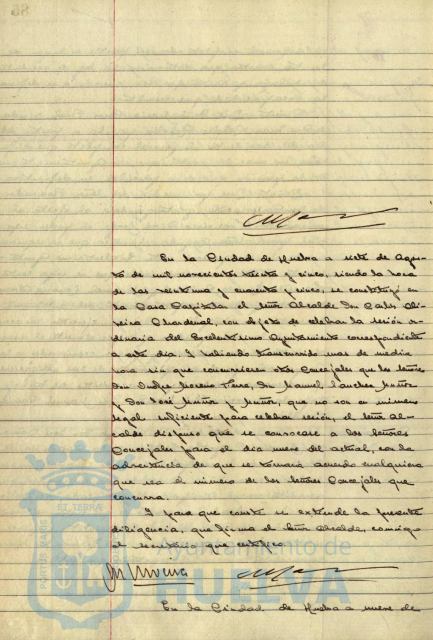 En la Ciudad de Huelva a siete de Agos-
to de mil novecientos treinta y cinco, siendo la hora
de las veintiuna y cuarenta y cinco, se constituyó en
la Casa Capitular el señor Alcalde Don Carlos Oli-
veira Chardenal, con objeto de celebrar la sesión or-
dinaria del Excelentísimo Ayuntamiento correspondiente
a este día. Y habiendo transcurrido mas de media
hora sin que concurrieren otros Concejales que los señores
Don Moreno Don Manuel Sanchez Muñoz
y Don José Muñoz y Muñoz, que no son en número
legal suficiente para celebrar sesión, el señor Al-
calde dispuso que se convocase a los señores
Concejales para el día nueve del actual, con la
advertencia de que se tomará acuerdo cualquiera
que sea el número de los señores Concejales que
concurra.
Y para que conste se extiende la presente
diligencia, que firma el señor Alcalde, conmigo
el secretario que certifico.
Ayuntamiento de
HUELVA
En la Ciudad de Huelva a nueve de